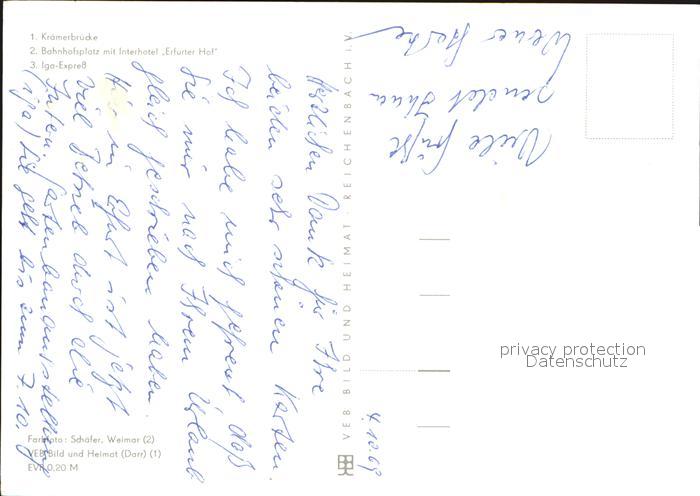 1. Krämerbrücke
2. Bahnhofsplatz mit Interhotel „Erfurter Hof"
3. Iga-Expreß
Herzlichen Dank für Ihre
beiden sehr schönen Karten.
Ich habe mich gefreut daß
Sie mir nach Ihrem Urlaub
gleich geschrieben haben.
Hier in Erfurt ist jetzt
viel Betrieb durch die
Intern. Gartenbauausstellung
(iga) Sie geht bis zum 7.10.
Viele Grüße
sendet Ihnen
Werner
4.10.69
VEB BILD UND HEIMAT · REICHENBACH i. V.
Farbfoto: Schäfer, Weimar (2)
VEB Bild und Heimat (Darr) (1)
EVP 0,20 M
privacy protection
Datenschutz